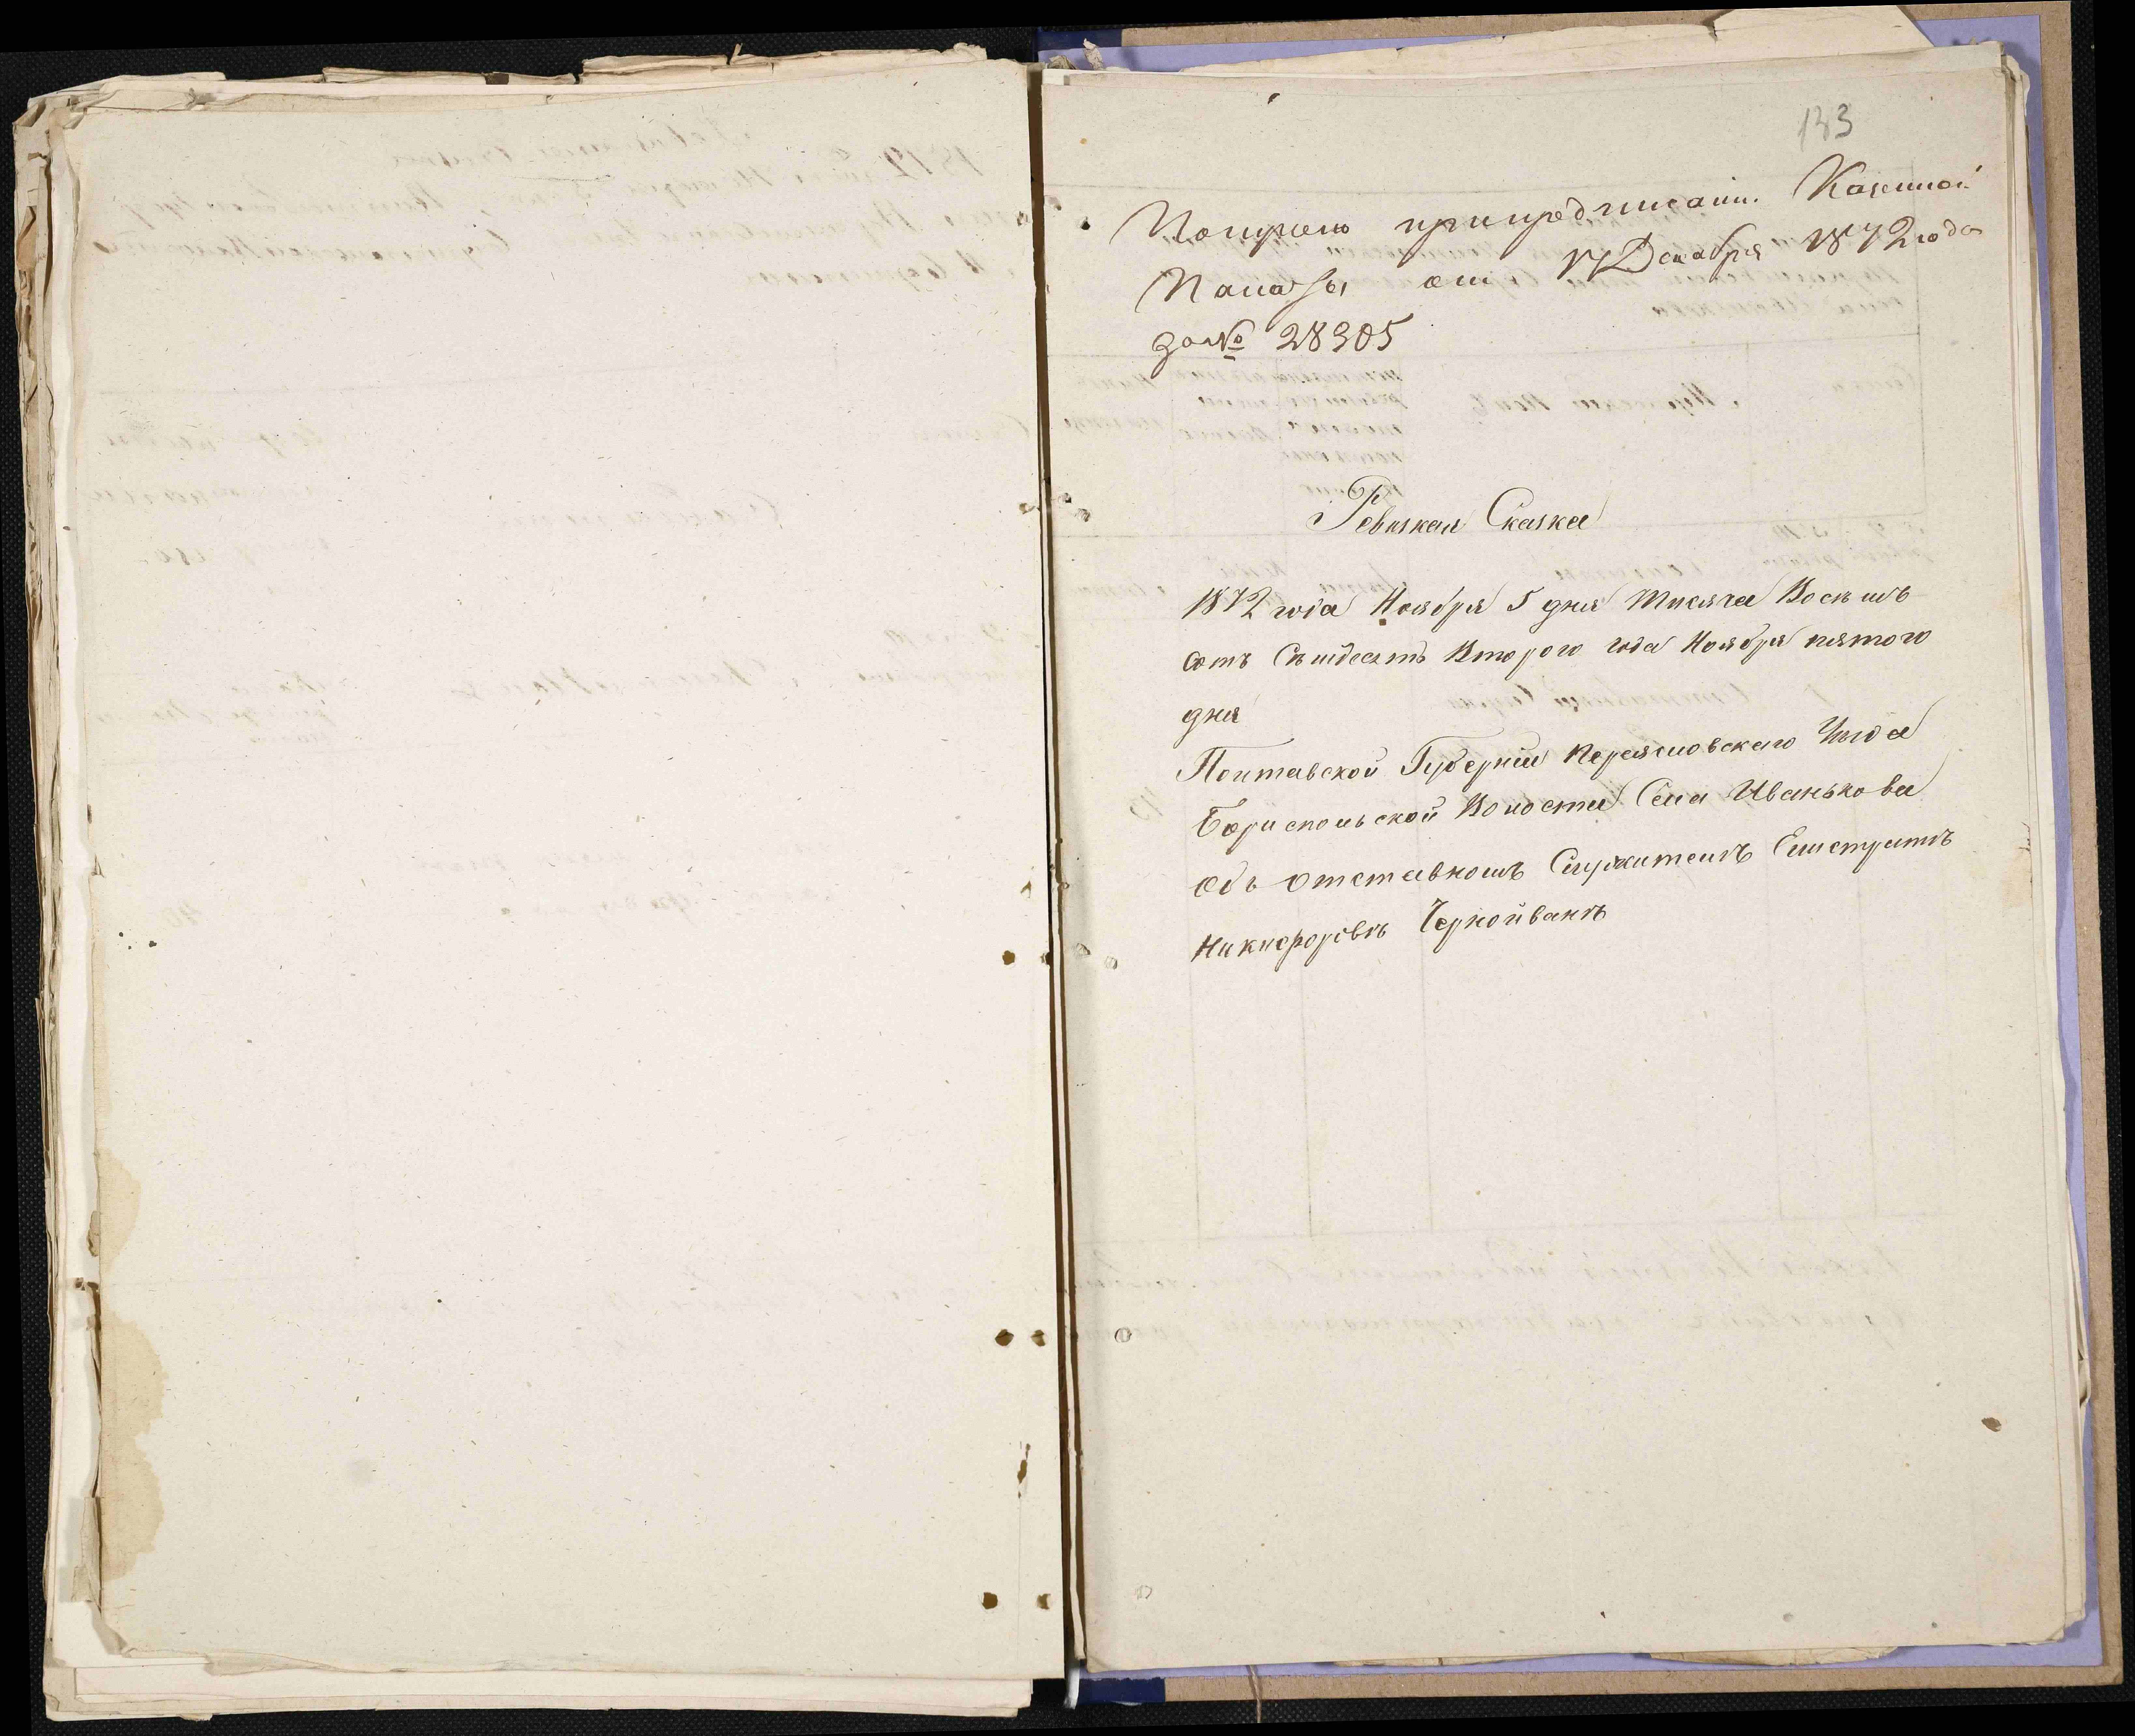 133
Получено при предписании Казенной
Палаты от 17 Декабря 1872 года
за № 28305
Ревизкая Сказка
1872 года Ноября 5 дня тисяча Восемъ
сотъ Семдесятъ Второго года Ноября пятого
дня
Полтавской Губерніи Переясловскаго Уезда
Бориспольской Волости Села Иванькова
объ отставномъ Служителѣ Елистратѣ
Никифоровѣ Чернойванѣ